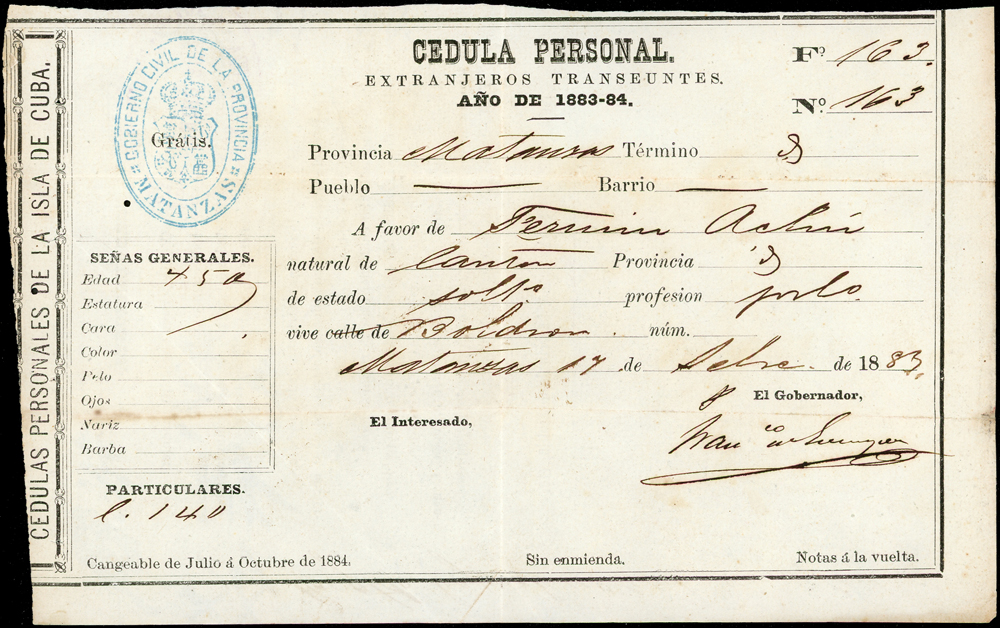 CEDULAS PERSONALES DE LA ISLA DE CUBA.
GOBIERNO CIVIL DE LA PROVINCIA
MATANZAS
Grátis.
CEDULA PERSONAL.
EXTRANJEROS TRANSEUNTES.
AÑO DE 1883-84.
F.º 163.
N.º 163
Provincia Matanzas Término
Pueblo — Barrio —
A favor de Fermin Achin
natural de Canton Provincia
de estado solto profesion
vive calle de núm.
Matanzas 17 de Sebre de 1883.
El Gobernador,
El Interesado,
SEÑAS GENERALES.
Edad 45
Estatura
Cara
Color
Pelo
Ojos
Nariz
Barba
PARTICULARES.
C. 140
Cangeable de Julio á Octubre de 1884.
Sin enmienda.
Notas á la vuelta.